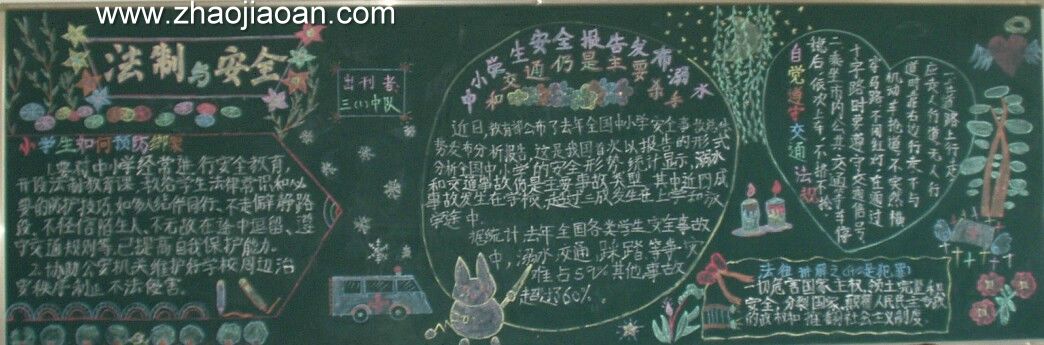 www.zhaojiaoan.com
法制与安全
出刊者
三(1)中队
小学生如何预防绑架
1.要对中小学经常进行安全教育,
开设法制教育课,教名学生法律常识和必
要的防护技后,如多人结伴同行、不走偏僻路
段、不轻信陌生人、不无故在途中逗留、遵
守交通规则等,已提高自我保护能力。
2.协助公安机关维护好学校周边治
安秩序制止不法侵害。
中小学生安全报告发布溺水
和交通仍是主要杀手
近日,教育部公布了去年全国中小学安全事故
势发布分析报告,这是我国首次以报告的形式
分析全国中小学的安全形势,统计显示,溺水
和交通事故仍是主要事故类型,其中近四成
事故发生在学校,超过三成发生在上学和放
学途中。
据统计去年全国各类学生安全事故
中,溺水交通,踩踏等事
故占59%其他事故
超过60%。
自觉遵守交通法规
一、在道路上行走,
应走人行道,无人行
道时靠右边行走,不与
机动车抢道,不突然横
穿马路,不闯红灯,在通过
十字路时要遵守交通信号
二、乘坐市内公共交通等车停
稳后,依次上车,不拥挤。
一切危害国家主权、领土完整和
安全,分裂国家、颠覆人民民主专政
的政权和推翻社会主义制度